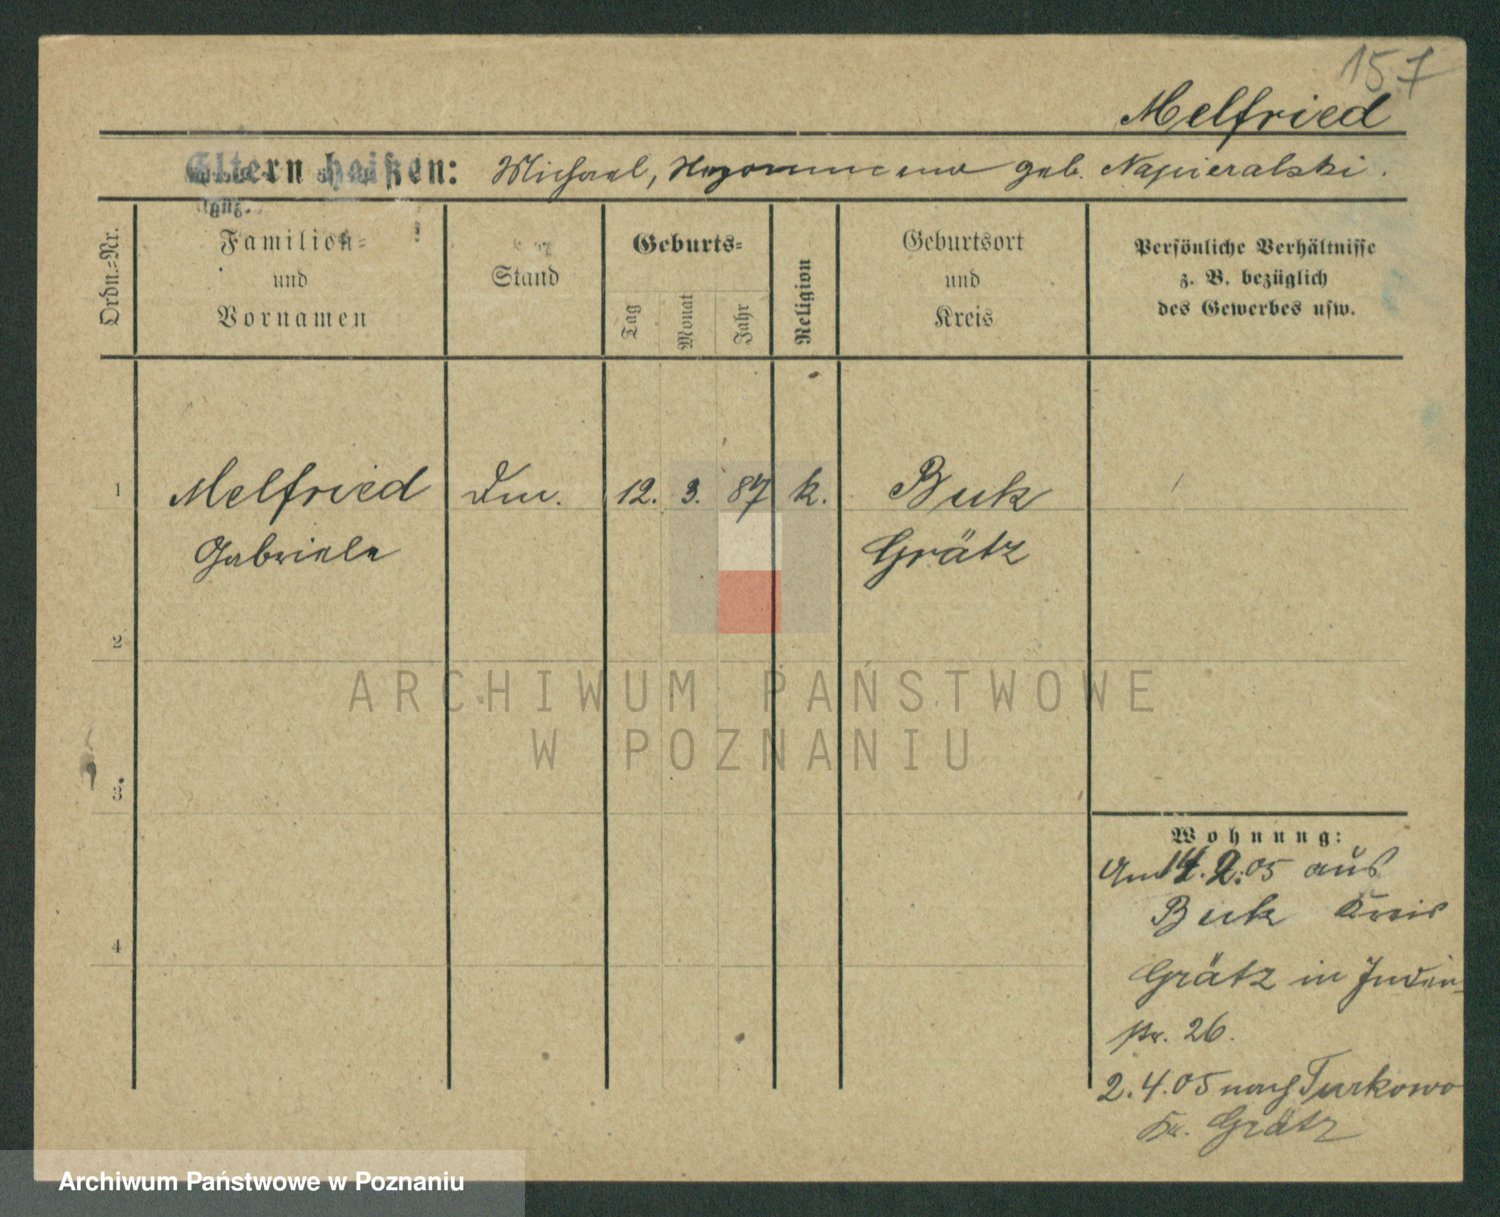 157
Melfried
Eltern heißen: Michael, geb. Napieralski.
Ordn.-Nr.
Familien-
und
Vornamen
Stand
Geburts-
Tag
Monat
Jahr
Religion
Geburtsort
und
Kreis
Persönliche Verhältnisse
z. B. bezüglich
des Gewerbes usw.
1 Melfried 12. 3. 87 k. Buk
Gabriele Grätz
2
ARCHIWUM PAŃSTWOWE
W POZNANIU
3
Wohnung:
Am 14. 2. 05 aus
Buk Kreis
4
Grätz in Juden-
str. 26.
2. 4. 05 nach Turkowo
Kr. Grätz
Archiwum Państwowe w Poznaniu